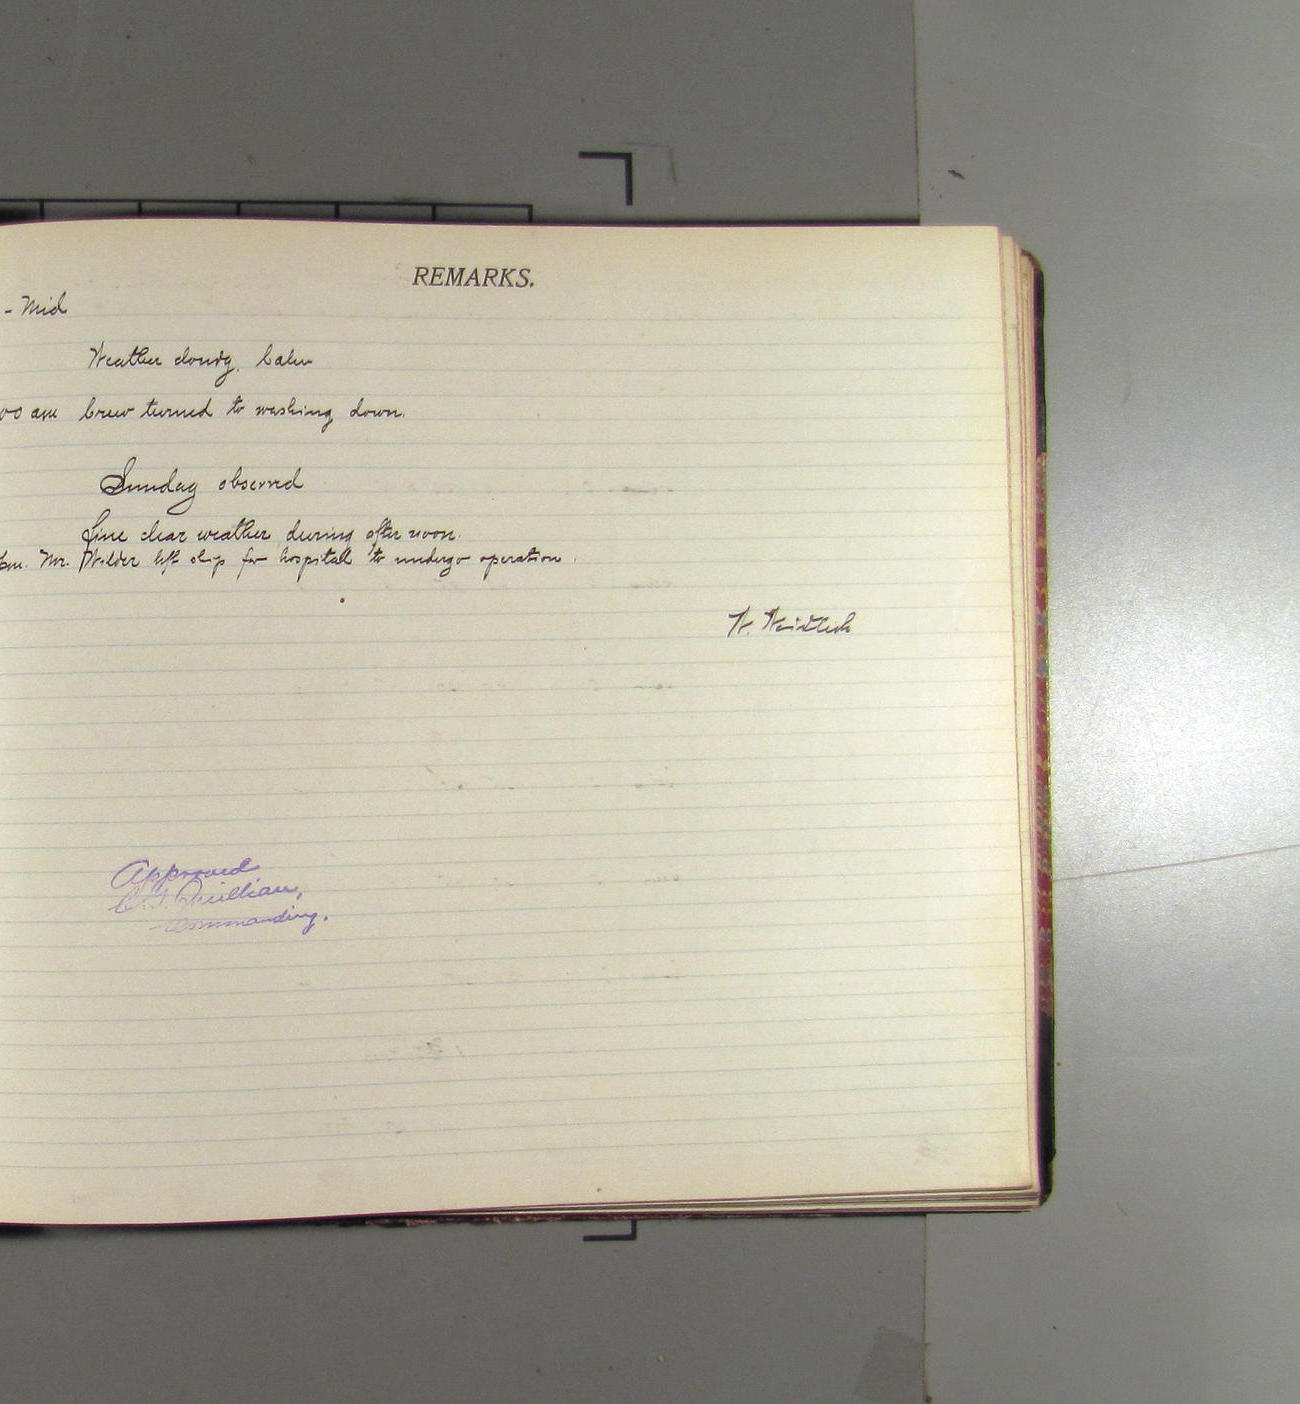 REMARKS.
- Mid
Weather cloudy, calm
00 am Crew turned to washing down.
Sunday observed
Fine clear weather during afternoon.
pm. Mr. Wilder left ship for hospital to undergo operation.
W. Weidlich
Approved
commanding.